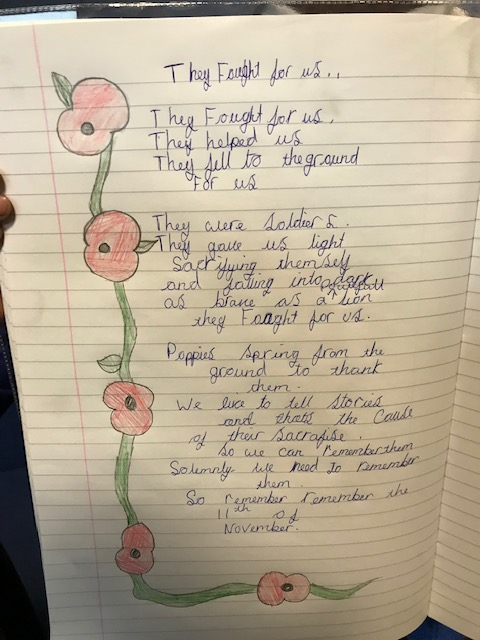 They Fought for us..
They Fought for us.
They helped us
They fell to the ground
For us
They were Soldiers.
They gave us light
Sacrifying themself
and falling into dark
as brave as a Powerfull lion
they Fought for us.
Poppies spring from the
ground to thank
them.
We like to tell stories
and the Cause
of their Sacrafise.
So we can remember them
Solemnly we need to remember
them.
So remember remember the
11th of
November.